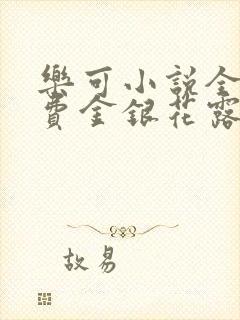 樂可小說全
費金銀花露
故易